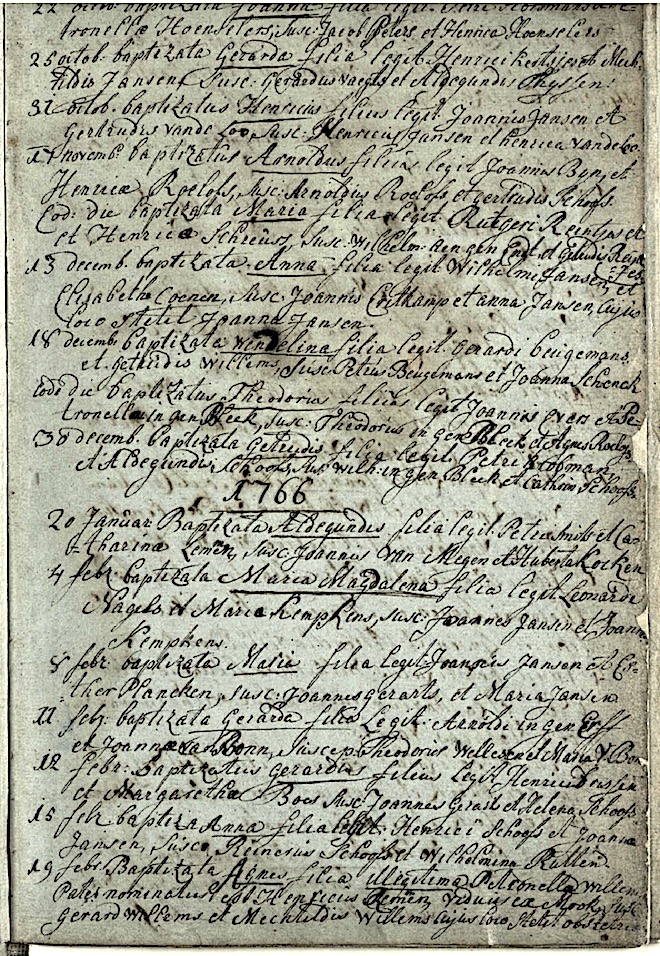 22 octob. baptizata Joanna filia legit.
tronellæ Hoenselers, Susc: Jacob Peters et Henrica Hoenselers
25 octob. baptizata Gerarda filia legit. Henrici
tildis Jansen, Susc: Gerardus Vaegs et Aldegundis Thyssen.
31 octob. baptizatus Henricus filius legit. Joannis Jansen et
Gertrudis vande Loo, Susc: Henricus Jansen et henrica vande Loo.
17 novemb. baptizatus Arnoldus filius legit Joannis Byn, et
Henricæ Roelofs, Susc: Arnoldus Roelofs et gertrudis Schoofs.
Eod: die baptizata Maria filia legit. Rutgeri Reintjes et
et Henricæ Schreurs, Susc: Wilhelm: aengen Endt et
13 decemb. baptizata Anna filia legit Wilhelmi Jansen, et
Elisabethæ Coenen, Susc: Joannis et anna Jansen, cujus
loco stetit Joanna Jansen.
18 decemb. baptizata Wendelina filia legit. Gerardi beugemans,
et getrudis Willems, Susc: Petrus Beugemans et Joanna Schenck
Eode die baptizatus Theodorus filius legit Joannis Evers et Pe-
tronella in gen Bleek, Susc: Theodorus in gen Bleek et Agnes
30 decemb. baptizata Getrudis filia legit. Petri
et Aldegundis Schoofs, Sus: Wilh: in gen Bleek et Cathrin Schoofs
1766
20 Januar. Baptizata Aldegundis filia legit. Petri Smits et Ca-
tharina Lemen, Susc: Joannes van Megen et Huberta Kocken
4 febr. baptizata Maria Magdalena filia legit Leonardi
Nagels et Maria Kempkens, Susc: Joannes Jansen et Joanna
Kempkens.
8 febr. baptizata Maria filia legit. Joannis Jansen et Es-
ther Plancken, susc: Joannes gerarts, et Maria Jansen
11 febr. baptizata Gerarda filia Legit: Arnoldi in gen Eoff
et Joannæ van Bonn, Suscep: Theodorus Wellesen et Maria V. Bon
12 febr. baptizatus gerardus filius legit Henrici
et Margaretha Boes Susc: Joannes Gerarts et Helena Schoofs
15 febr. baptiza Anna filia legit. Henrici Schoofs et Joanna
Jansen, Susc: Reinerus Schoofs et Wilhelmina Rutten
19 febr. Baptizata Agnes filia illegitima Petronella Willems
Pater nominatus est Henricus Lemen, viduus ex Mook, Susc:
Gerard Willems et Mechtildis Willems cujus loco stetit